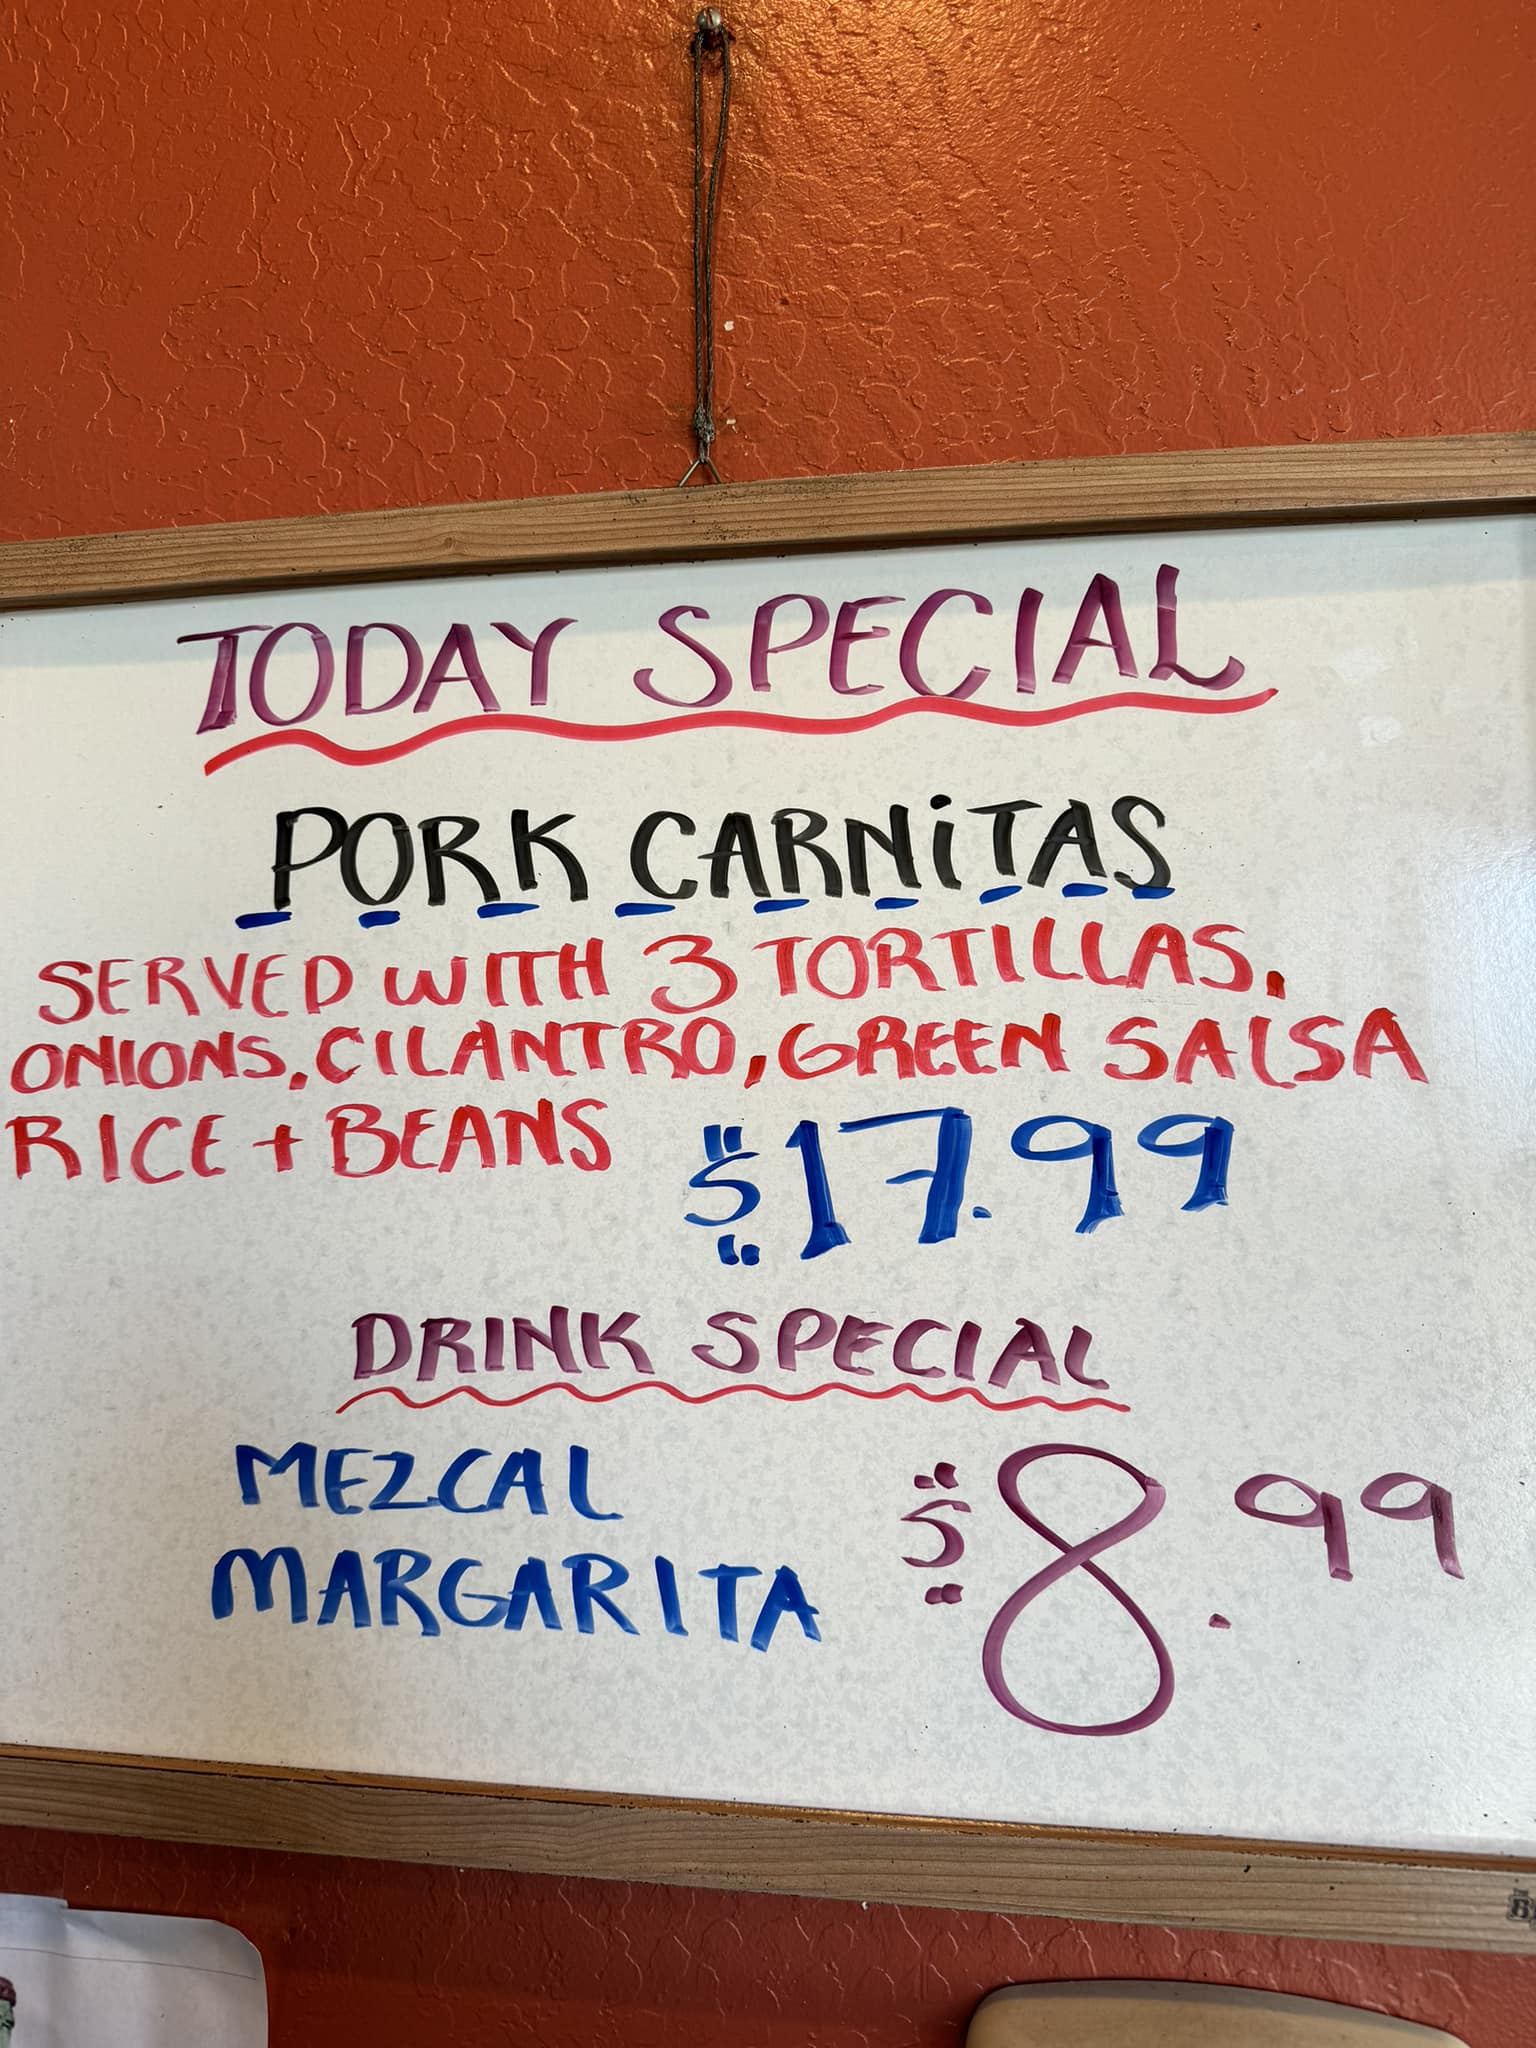 TODAY SPECIAL
PORK CARNiTAS
SERVED WITH 3 TORTILLAS.
ONIONS. CILANTRO, GREEN SALSA
RICE + BEANS $17.99
DRINK SPECIAL
MEZCAL
MARGARITA $8.99